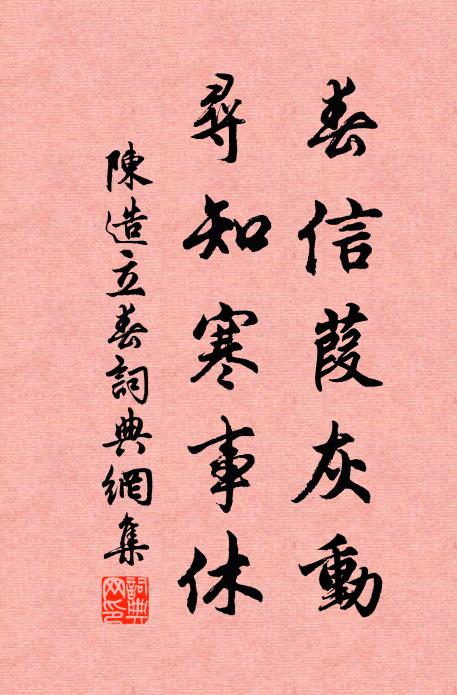 春信葭灰動
尋知寒事休
陳造立春詞典網集
詞典
网印